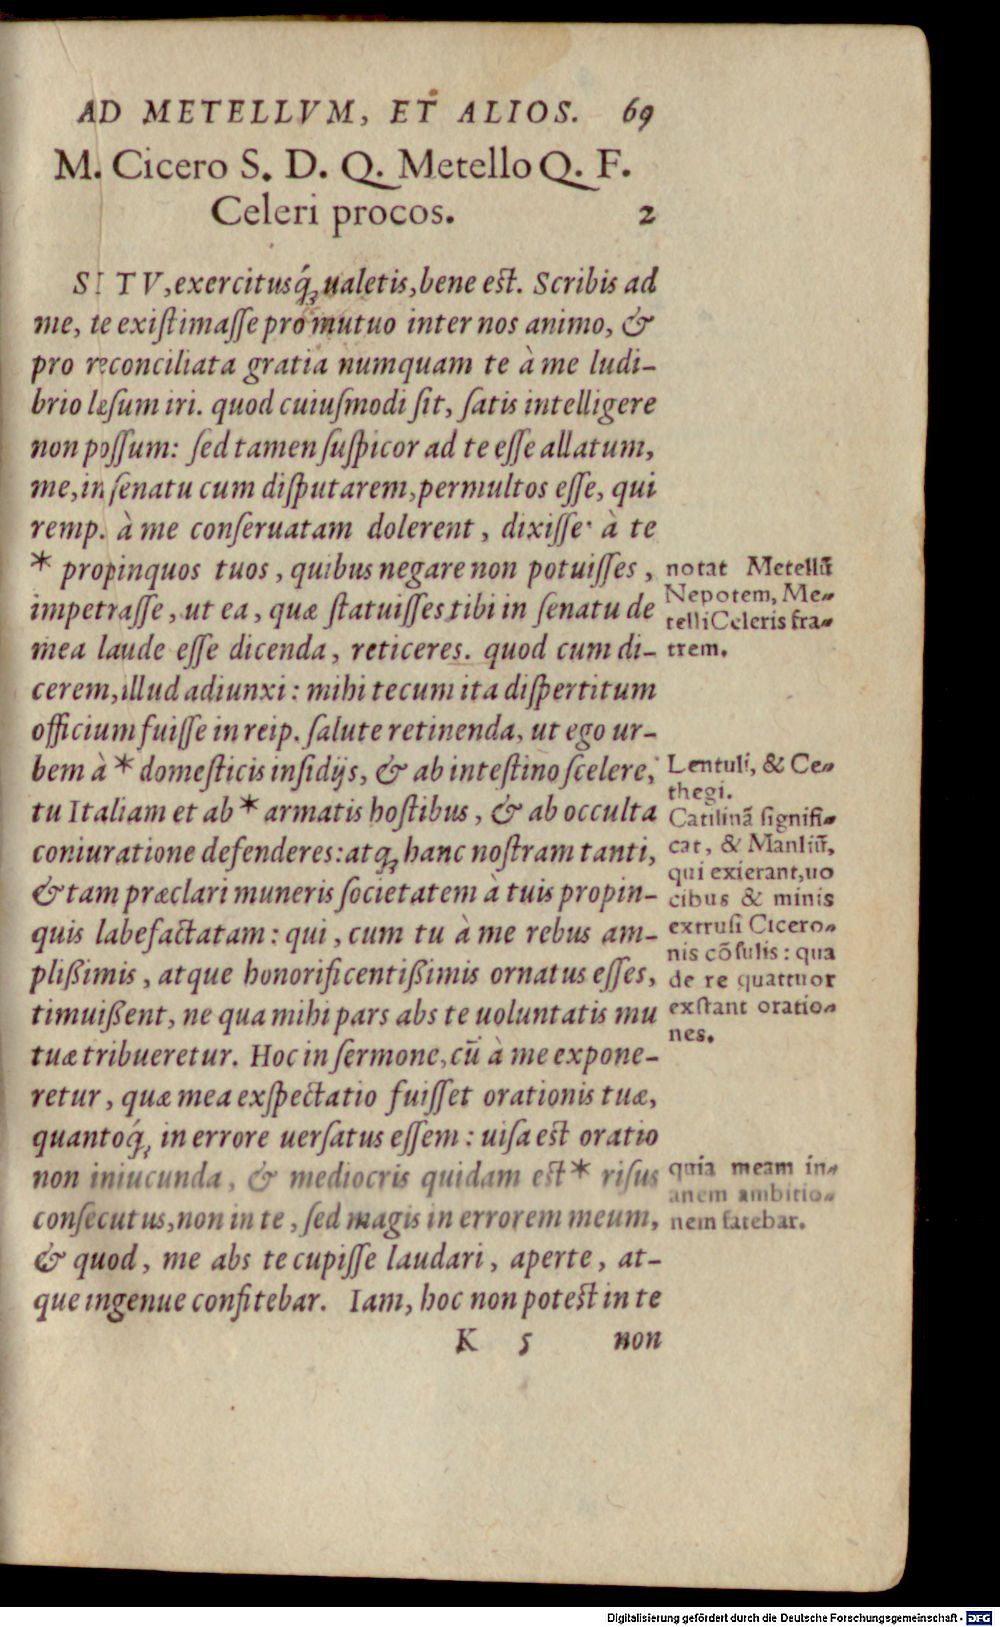 AD METELLVM, ET ALIOS. 69
M. Cicero S. D. Q. Metello Q. F.
Celeri procos. 2
SI TV, exercitusq́; ualetis, bene est. Scribis ad
me, te existimaſſe pro mutuo inter nos animo, &
pro reconciliata gratia numquam te à me ludi-
brio læſum iri. quod cuiuſmodi ſit, ſatis intelligere
non poſſum: ſed tamen ſuſpicor ad te eſſe allatum,
me, in ſenatu cum diſputarem, permultos eſſe, qui
remp. à me conſeruatam dolerent, dixiſſe à te
* propinquos tuos, quibus negare non potuiſſes,
impetraſſe, ut ea, quæ ſtatuiſſes tibi in ſenatu de
mea laude eſſe dicenda, reticeres. quod cum di-
cerem, illud adiunxi: mihi tecum ita diſpertitum
officium fuiſſe in reip. ſalute retinenda, ut ego ur-
bem à * domeſticis inſidijs, & ab inteſtino ſcelere,
tu Italiam et ab * armatis hoſtibus, & ab occulta
coniuratione defenderes: atq; hanc noſtram tanti,
& tam præclari muneris ſocietatem à tuis propin-
quis labefactatam: qui, cum tu à me rebus am-
plißimis, atque honorificentißimis ornatus eſſes,
timuißent, ne qua mihi pars abs te uoluntatis mu
tuæ tribueretur. Hoc in ſermone, cū à me expone-
retur, quæ mea exſpectatio fuiſſet orationis tuæ,
quantoq́; in errore uerſatus eſſem: uiſa est oratio
non iniucunda, & mediocris quidam est * riſus
conſecutus, non in te, ſed magis in errorem meum,
& quod, me abs te cupiſſe laudari, aperte, at-
que ingenue confitebar. Iam, hoc non potest in te
K 5 non
notat Metellū
Nepotem, Me-
telli Celeris fra-
trem.
Lentuli, & Ce-
thegi.
Catilinā ſignifi-
cat, & Manliū,
qui exierant, uo
cibus & minis
extruſi Cicero-
nis cōſulis: qua
de re quattuor
exſtant oratio-
nes.
quia meam in-
anem ambitio-
nem fatebar.
Digitalisierung gefördert durch die Deutsche Forschungsgemeinschaft - DFG